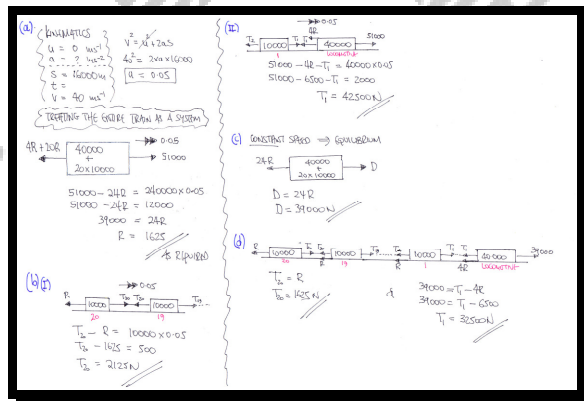 (a)
KINEMATICS
u = 0 ms⁻¹
a = ? ms⁻²
S = 16000m
t =
V = 40 ms⁻¹
V² = u² + 2as
40² = 2×a×16000
a = 0.05
TREATING THE ENTIRE TRAIN AS A SYSTEM
0.05
4R+20R
40000
+
20×10000
51000
51000 - 24R = 240000×0.05
51000 - 24R = 12000
39000 = 24R
R = 1625
AS REQUIRED
(b)(I)
0.05
R
10000
T₂₀ T₂₀
10000
T₁₉
20
19
T₂₀ - R = 10000×0.05
T₂₀ - 1625 = 500
T₂₀ = 2125N
(II)
0.05
4R
10000
T₁ T₁
40000
51000
1
LOCOMOTIVE
51000 - 4R - T₁ = 40000×0.05
51000 - 6500 - T₁ = 2000
T₁ = 42500N
(c) CONSTANT SPEED ⇒ EQUILIBRIUM
24R
40000
+
20×10000
D
D = 24R
D = 39000N
(d)
R
10000
10000
10000
T₁ T₁
40000
39000
20
R
19
R
1
4R
LOCOMOTIVE
T₂₀ = R
T₂₀ = 1625N
&
39000 = T₁ - 4R
39000 = T₁ - 6500
T₁ = 32500N